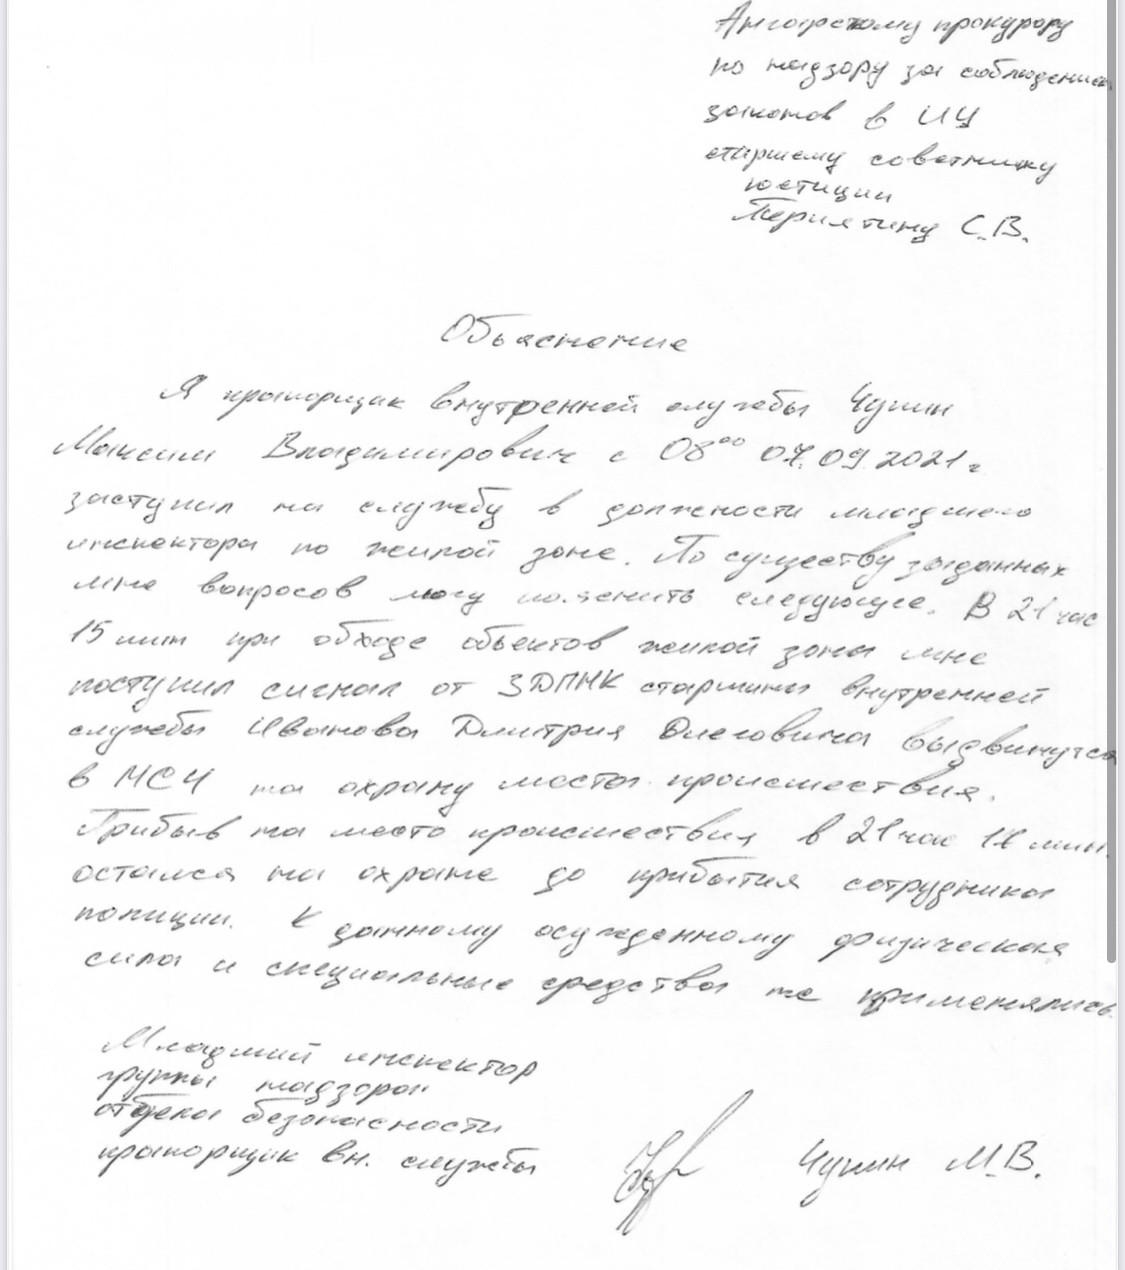 Ангарскому прокурору
по надзору за соблюдением
законов в ИУ
старшему советнику
юстиции
Перпятину С.В.
Объяснение
Я прапорщик внутренней службы Чупин
Максим Владимирович с 08⁰⁰ 07.09.2021 г.
заступил на службу в должности младшего
инспектора по жилой зоне. По существу заданных
мне вопросов могу пояснить следующее. В 21 час
15 мин при обходе объектов жилой зоны мне
поступил сигнал от ЗДПНК старшины внутренней
службы Иванова Дмитрия Олеговича выдвинутся
в МСЧ на охрану места происшествия.
Прибыв на место происшествия в 21 час 18 мин.
остался на охране до прибытия сотрудника
полиции. К данному осужденному физическая
сила и специальные средства не применялись.
Младший инспектор
группы надзора
отдела безопасности
прапорщик вн. службы
Чупин М.В.